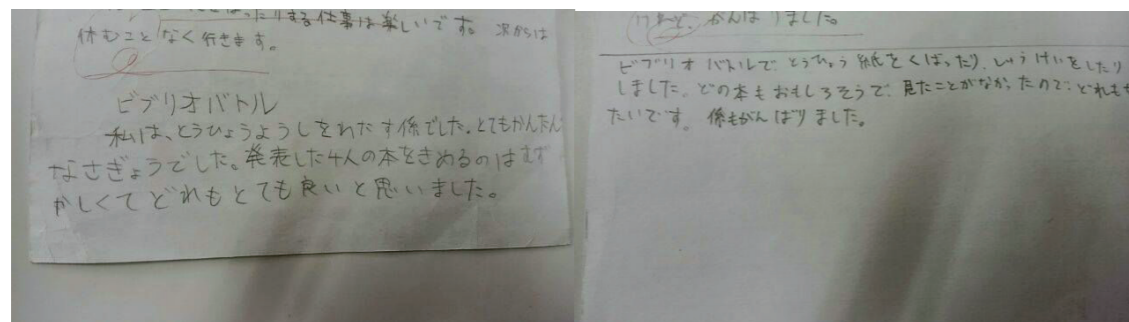 たりする仕事は楽しいです。次からは
休むことなく行きます。
ビブリオバトル
私は、とうひょうようしをわたす係でした。とてもかんたん
なさぎょうでした。発表した4人の本をきめるのはむず
かしくてどれもとても良いと思いました。
がんばりました。
ビブリオバトルで、とうひょう紙をくばったり、しゅうけいをしたり
しました。どの本もおもしろそうで、見たことがなかったので、どれも
たいです。係もがんばりました。